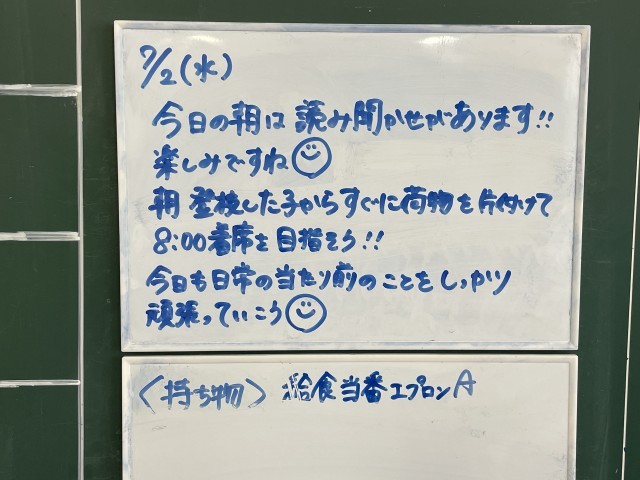 7/2(水)
今日の朝は読み聞かせがあります!!
楽しみですね
朝登校した子からすぐに荷物を片付けて
8:00着席を目指そう!!
今日も日常の当たり前のことをしっかり
頑張っていこう
〈持ち物〉 給食当番エプロンA